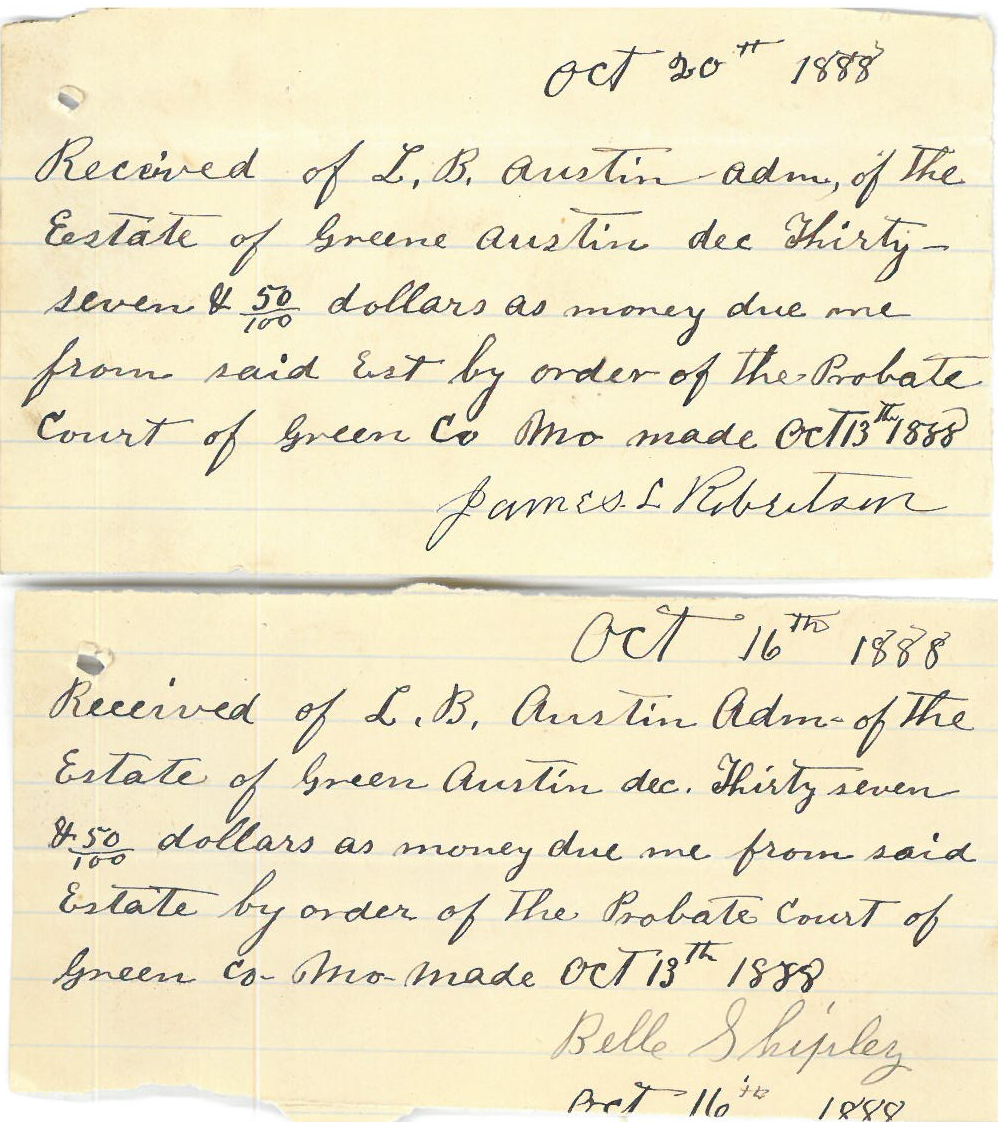 Oct 20th 1888
Received of L. B. Austin adm, of the
Eestate of Greene Austin dec Thirty-
seven & 50/100 dollars as money due me
from said Est by order of the Probate
Court of Green Co Mo made Oct 13th 1888
James L Robertson
Oct 16th 1888
Received of L. B. Austin Adm- of the
Estate of Green Austin dec. Thirty seven
& 50/100 dollars as money due me from said
Estate by order of the Probate Court of
Green Co- Mo- made Oct 13th 1888
Belle Shipley
Oct 16th 1888